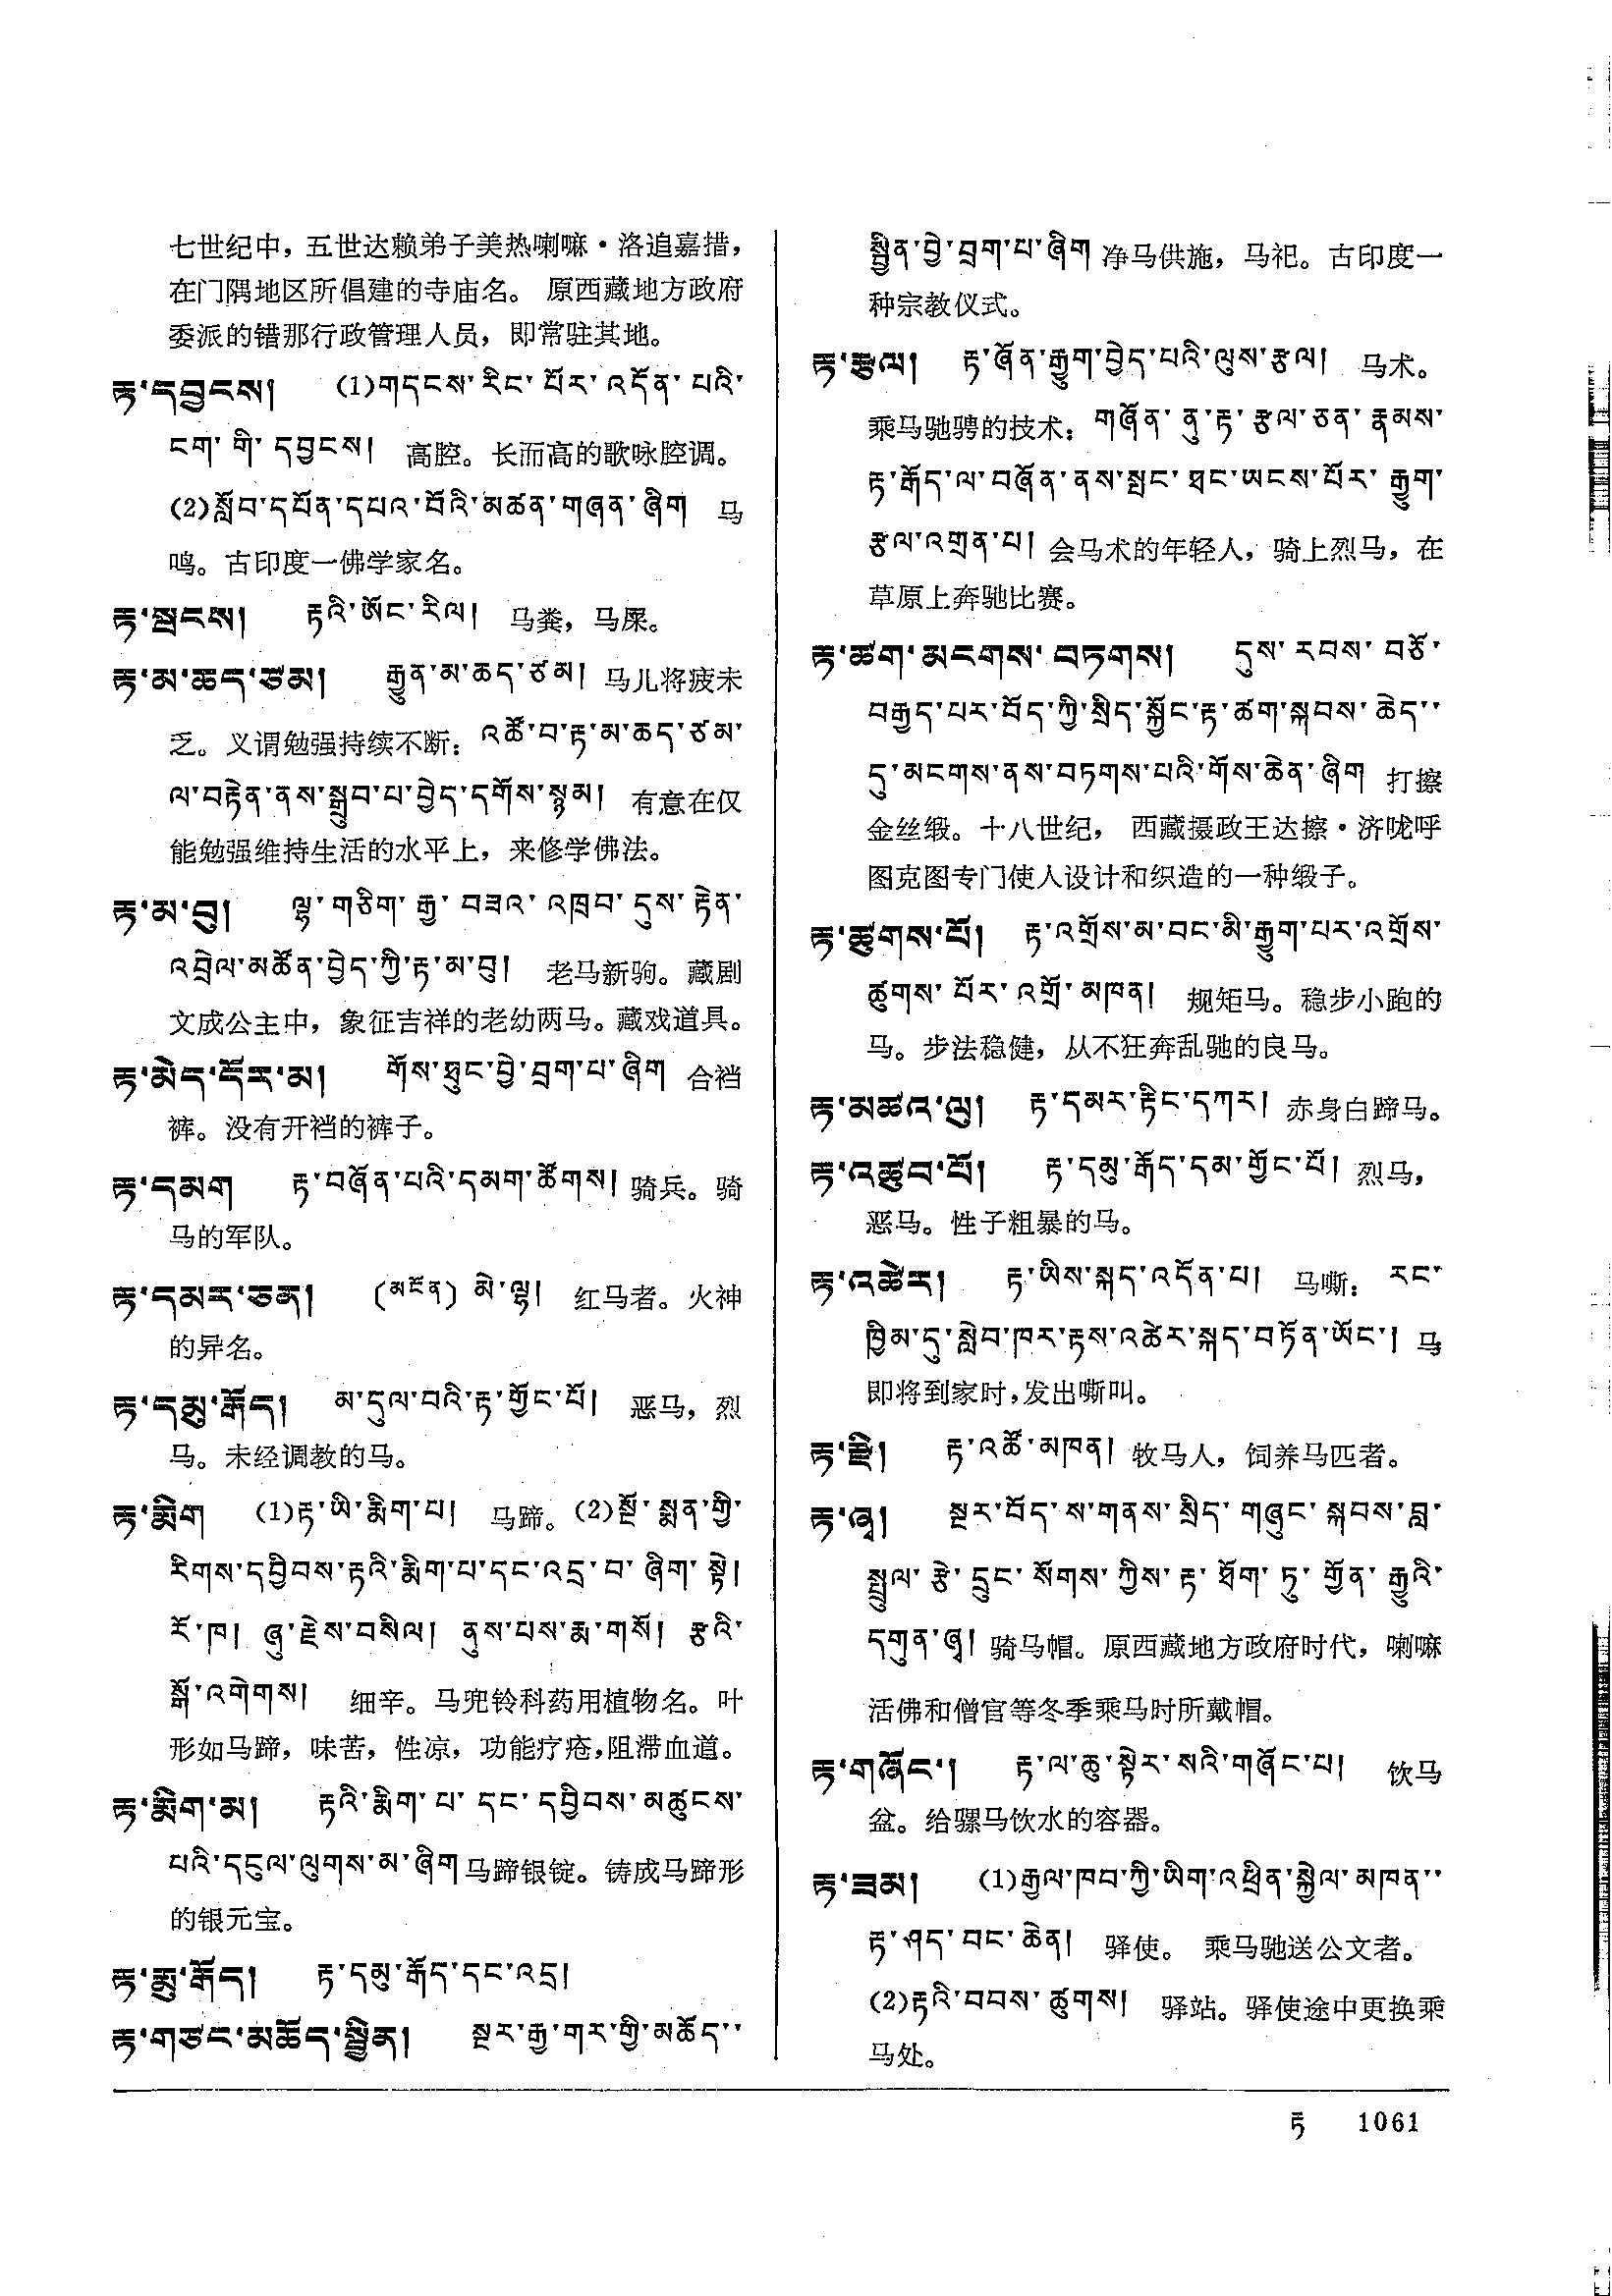 七世纪中，五世达赖弟子美热喇嘛·洛追嘉措，
在门隅地区所倡建的寺庙名。 原西藏地方政府
委派的错那行政管理人员，即常驻其地。
རྟ་དབྱངས། (1)གདངས་རིང་པོར་འདོན་པའི་
ངག་གི་དབྱངས། 高腔。长而高的歌咏腔调。
(2)སློབ་དཔོན་དཔའ་བོའི་མཚན་གཞན་ཞིག 马
鸣。古印度一佛学家名。
རྟ་སྦངས། རྟའི་ཨོང་རིལ། 马粪，马屎。
རྟ་མ་ཆད་ཙམ། རྒྱུན་མ་ཆད་ཙམ། 马儿将疲未
乏。义谓勉强持续不断：འཚོ་བ་རྟ་མ་ཆད་ཙམ་
ལ་བརྟེན་ནས་སྒྲུབ་པ་བྱེད་དགོས་སྙམ། 有意在仅
能勉强维持生活的水平上，来修学佛法。
རྟ་མ་བུ། ལྷ་གཅིག་རྒྱ་བཟའ་འཁྲབ་དུས་རྟེན་
འབྲེལ་མཚོན་བྱེད་ཀྱི་རྟ་མ་བུ། 老马新驹。藏剧
文成公主中，象征吉祥的老幼两马。藏戏道具。
རྟ་མེད་དོར་མ། གོས་ཐུང་བྱེ་བྲག་པ་ཞིག 合裆
裤。没有开裆的裤子。
རྟ་དམག རྟ་བཞོན་པའི་དམག་ཚོགས། 骑兵。骑
马的军队。
རྟ་དམར་ཅན། (མངོན) མེ་ལྷ། 红马者。火神
的异名。
རྟ་དམུ་རྒོད། མ་དུལ་བའི་རྟ་གྱོང་པོ། 恶马，烈
马。未经调教的马。
རྟ་རྨིག (1)རྟ་ཡི་རྨིག་པ། 马蹄。(2)སྔོ་སྨན་གྱི་
རིགས་དབྱིབས་རྟའི་རྨིག་པ་དང་འདྲ་བ་ཞིག་སྟེ།
རོ་ཁ། ཞུ་རྗེས་བསིལ། ནུས་པས་རྨ་གསོ། རྩའི་
སྒོ་འགེགས། 细辛。马兜铃科药用植物名。叶
形如马蹄，味苦，性凉，功能疗疮，阻滞血道。
རྟ་རྨིག་མ། རྟའི་རྨིག་པ་དང་དབྱིབས་མཚུངས་
པའི་དངུལ་ལུགས་མ་ཞིག 马蹄银锭。铸成马蹄形
的银元宝。
རྟ་རྨུ་རྒོད། རྟ་དམུ་རྒོད་དང་འདྲ།
རྟ་གཙང་མཆོད་སྦྱིན། སྔར་རྒྱ་གར་གྱི་མཆོད་་
སྦྱིན་བྱེ་བྲག་པ་ཞིག 净马供施，马祀。古印度一
种宗教仪式。
རྟ་རྩལ། རྟ་ཞོན་རྒྱུག་བྱེད་པའི་ལུས་རྩལ། 马术。
乘马驰骋的技术：གཞོན་ནུ་རྟ་རྩལ་ཅན་རྣམས་
རྟ་རྒོད་ལ་བཞོན་ནས་སྤང་ཐང་ཡངས་པོར་རྒྱུག་
རྩལ་འགྲན་པ། 会马术的年轻人，骑上烈马，在
草原上奔驰比赛。
རྟ་ཚག་མངགས་བཏགས། དུས་རབས་བཅོ་
བརྒྱད་པར་བོད་ཀྱི་སྲིད་སྐྱོང་རྟ་ཚག་སྐབས་ཆེད་་
དུ་མངགས་ནས་བཏགས་པའི་གོས་ཆེན་ཞིག 打擦
金丝缎。十八世纪， 西藏摄政王达擦·济咙呼
图克图专门使人设计和织造的一种缎子。
རྟ་ཚུགས་པོ། རྟ་འགྲོས་མ་བང་མི་རྒྱུག་པར་འགྲོས་
ཚུགས་པོར་འགྲོ་མཁན། 规矩马。稳步小跑的
马。步法稳健，从不狂奔乱驰的良马。
རྟ་མཚའ་ལུ། རྟ་དམར་རྟིང་དཀར། 赤身白蹄马。
རྟ་འཚུབ་པོ། རྟ་དམུ་རྒོད་དམ་གྱོང་པོ། 烈马，
恶马。性子粗暴的马。
རྟ་འཚེར། རྟ་ཡིས་སྐད་འདོན་པ། 马嘶： རང་
ཁྱིམ་དུ་སླེབ་ཁར་རྟས་འཚེར་སྐད་བཏོན་ཡོང་། 马
即将到家时，发出嘶叫。
རྟ་རྫི། རྟ་འཚོ་མཁན། 牧马人，饲养马匹者。
རྟ་ཞྭ། སྔར་བོད་ས་གནས་སྲིད་གཞུང་སྐབས་བླ་
སྤྲུལ་རྩེ་དྲུང་སོགས་ཀྱིས་རྟ་ཐོག་ཏུ་གྱོན་རྒྱུའི་
དགུན་ཞྭ། 骑马帽。原西藏地方政府时代，喇嘛
活佛和僧官等冬季乘马时所戴帽。
རྟ་གཞོང་། རྟ་ལ་ཆུ་སྟེར་སའི་གཞོང་པ། 饮马
盆。给骡马饮水的容器。
རྟ་ཟམ། (1)རྒྱལ་ཁབ་ཀྱི་ཡིག་འཕྲིན་སྐྱེལ་མཁན་་
རྟ་ཤད་བང་ཆེན། 驿使。 乘马驰送公文者。
(2)རྟའི་བབས་ཚུགས། 驿站。驿使途中更换乘
马处。
རྟ 1061